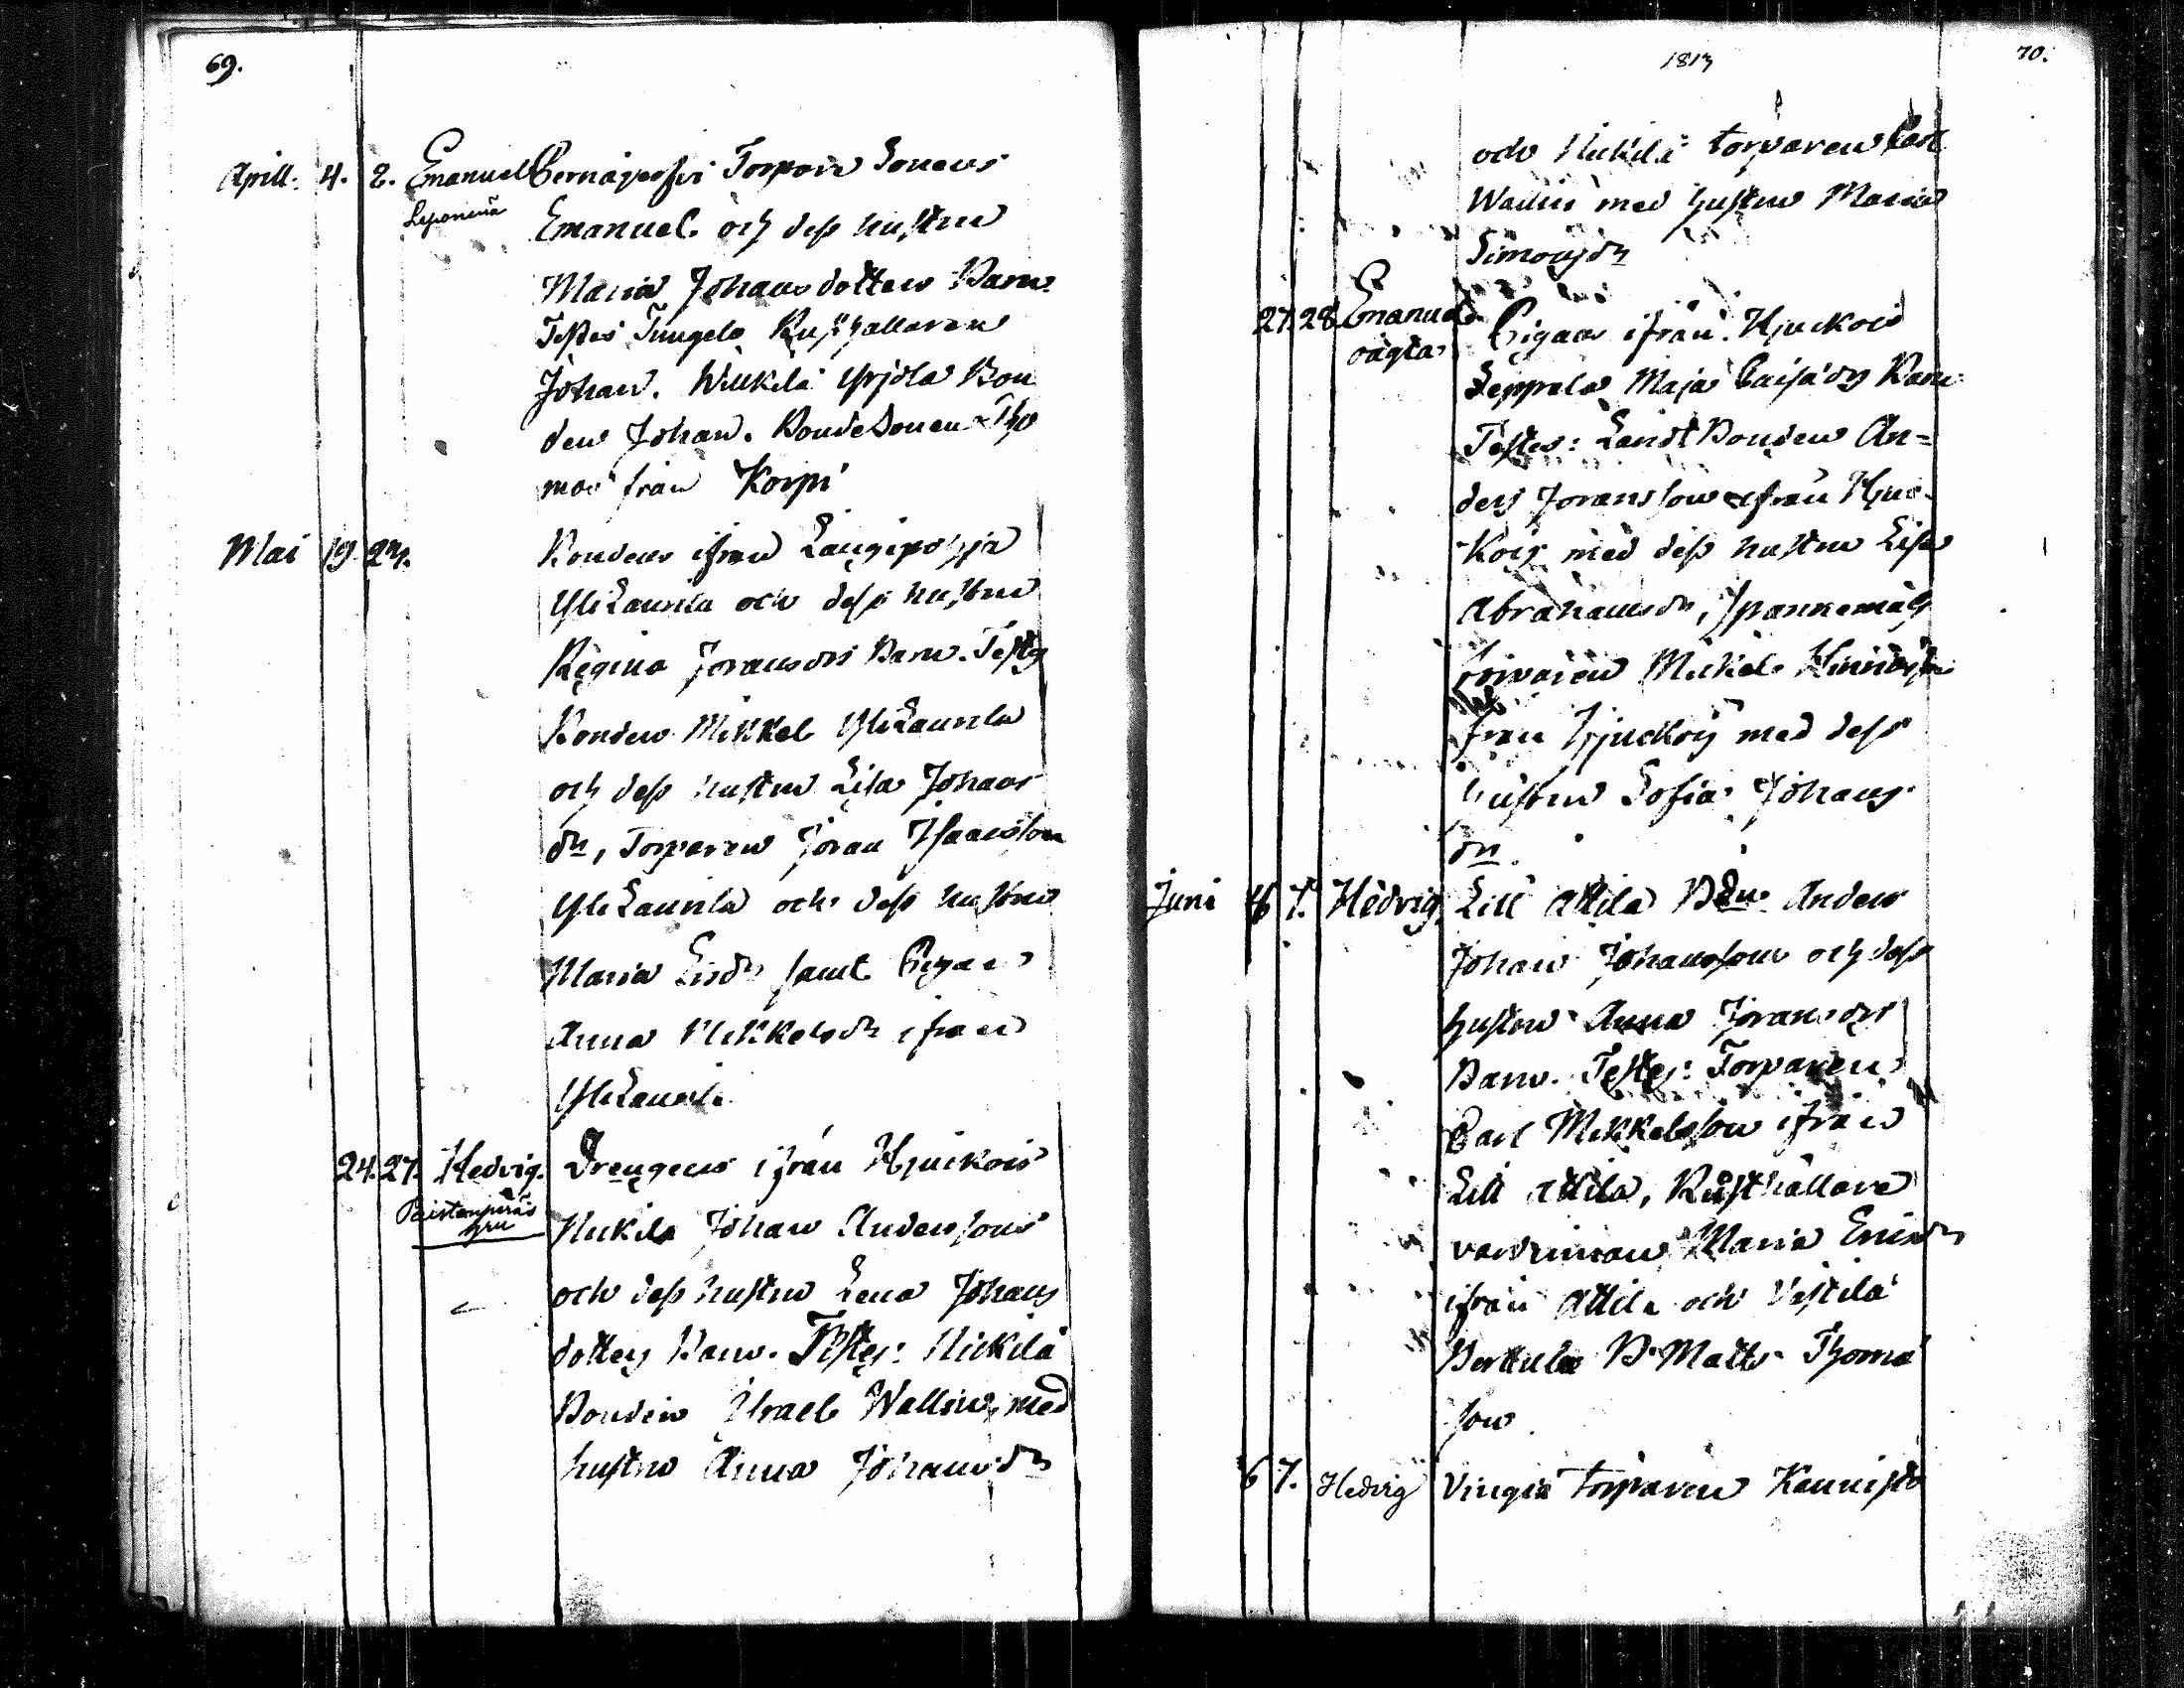 69.
Aprill. 4. 8. Emanuel Torpare Sonens
Emanuel och dess hustru
Maria Johansdotters Barn.
Testes Rusthållaren
Johan. Bon
den Johan. Bondesonen Tho
mas från Korpi
Mai 19. 24. Bondens ifrån
YliLaurila och dess hustru
Regina Joransdrs Barn. Testes
Bonden Mikkel YliLaurila
och dess hustru Lisa Johans
dr, Torparen Joran Isaacsson
YliLaurila och dess hustru
Maria samt Pigan
Anna Mikkelsdr ifrån
YliLaurila
24. 27. Hedvig. Drengens ifrån Hjuckois
Nickila Johan Anderssons
och dess hustru Lena Johans
dotters Barn. Testes: Nickilä
Bonden Israel Wallin med
hustru Anna Johansdr
1813
70.
och Nickilä torparen Carl
Wallin med hustru Maria
Simonsdr
27. 28 Emanuel
oägta Pigans ifrån Hjuckois
Seppala Maja Barn
Testes: Landt Bonden An=
ders Joransson ifrån Hjuc
kois med dess hustru Lisa
Abrahamsdr,
torparen Mickel
från Hjuckois med dess
hustru Sofia Johans
dr.
Juni 6 7. Hedvig Lill Attila Anders
Johan Johansson och dess
hustru Anna Joransdrs
Barn. Testes: Torparen
Carl Mikkelsson ifrån
Lill Attila, Rusthållare
värdinnan Maria Ericsdr
ifrån Attila och Vestilä
Perttula B. Matts Thoma
son
6 7. Hedvig torparen Kannisto